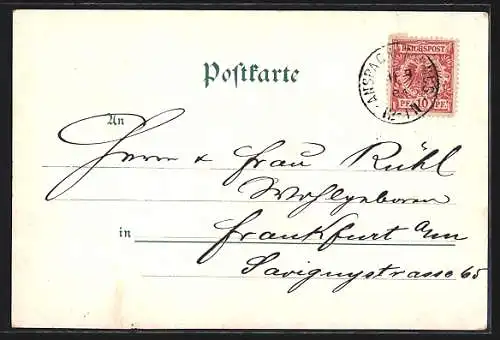 REICHSPOST
PF 10 PF
ANSPACH
Postkarte
An
Herrn & Frau Rühl
Wohlgeboren
in Frankfurt a/m
Savignystrasse 65